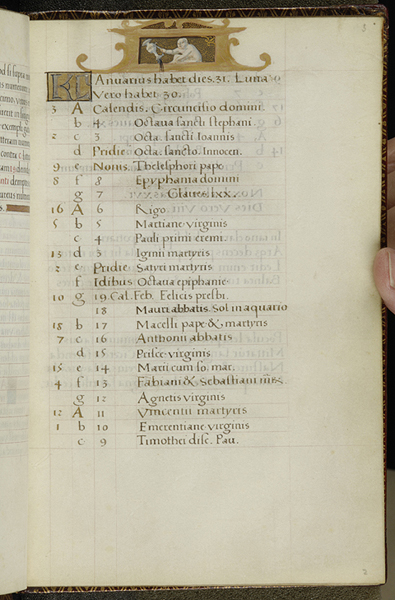 KL Anuarius habet dies. 31. Luna
Vero habet 30.
3 A Calendis. Circuncisio domini.
b 4 Octaua sancti stephani.
2 c 3 Octa. sancti Ioannis
d Pridie Octa. sancto. Innocen.
9 e Nonis. Thelesphori pape
8 f 8 Epyphania domini
g 7 Claues. lxx.
16 A 6 Rigo.
5 b 5 Martiane virginis
c 4 Pauli primi erem.
13 d 3 Iginii martyris
2 e Pridie Satyri martyris
f Idibus Octaua epiphanie
10 g 19. Cal. Feb. Felicis presbi.
18 Mauri abbatis. Sol in aquario
18 b 17 Macelli pape & martyris
7 c 16 Anthonii abbatis
d 15 Prisce virginis
15 e 14 Marii cum so. mar.
4 f 13 Fabiani & Sebastiani
g 12 Agnetis virginis
12 A 11 Vincentii martyris
1 b 10 Emerentiane virginis
c 9 Timothei disc. Pau.
2